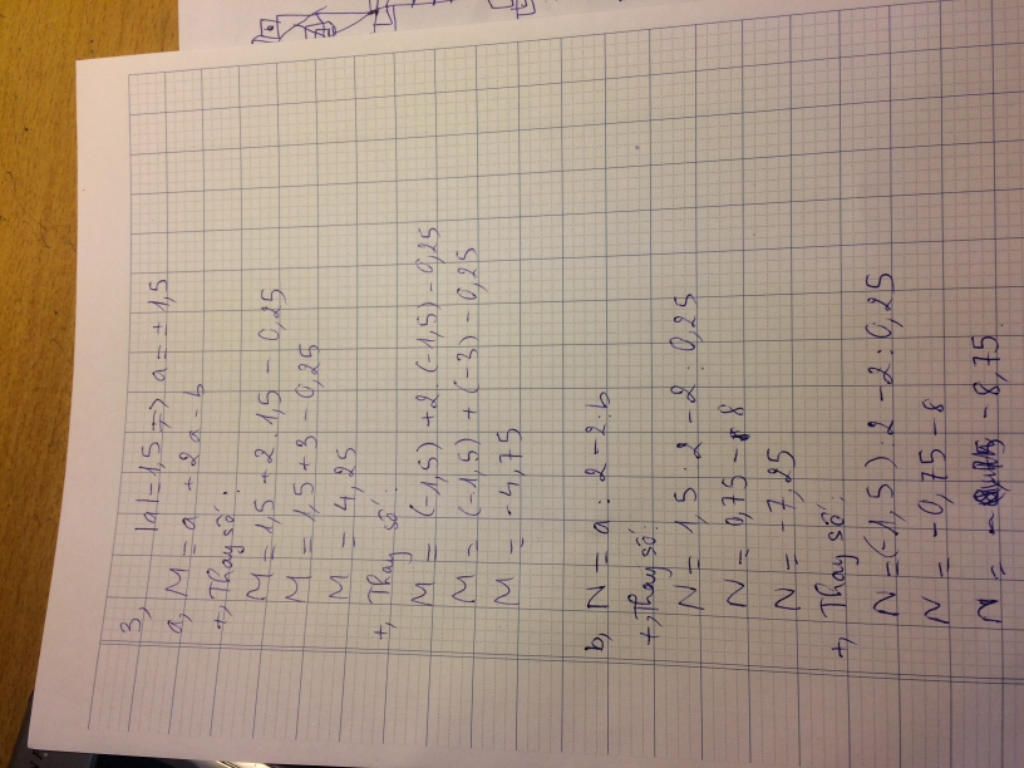 3, |a| = 1,5 => a = ± 1,5
a, M = a + 2a - b
+, Thay số:
M = 1,5 + 2.1,5 - 0,25
M = 1,5 + 3 - 0,25
M = 4,25
+, Thay số:
M = (-1,5) + 2.(-1,5) - 0,25
M = (-1,5) + (-3) - 0,25
M = -4,75
b, N = a : 2 - 2.b
+, Thay số:
N = 1,5 : 2 - 2 : 0,25
N = 0,75 - 8
N = -7,25
+, Thay số:
N = (-1,5) : 2 - 2 : 0,25
N = -0,75 - 8
N = - 8,75